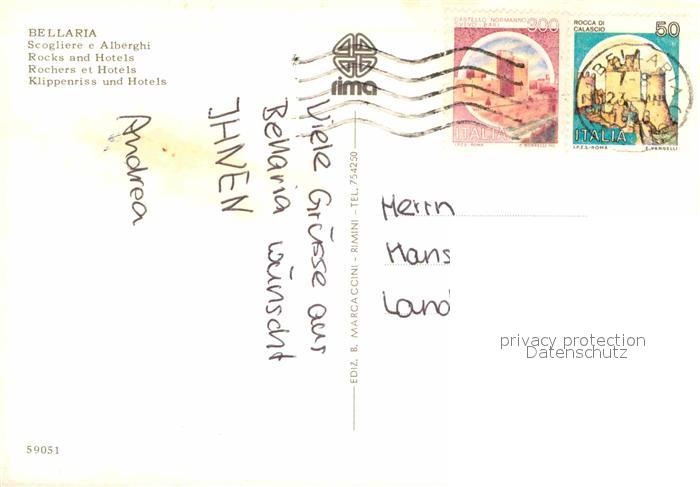 BELLARIA
Scogliere e Alberghi
Rocks and Hotels
Rochers et Hotels
Klippenriss und Hotels
rima
CASTELLO NORMANNO
SVEVO - BARI
300
ITALIA
I.P.Z.S. - ROMA
ROCCA DI
CALASCIO
50
ITALIA
I.P.Z.S. - ROMA
E. VANGELLI
BELLARIA
Viele Grüsse aus
Bellaria wünscht
IHNEN
Andrea
EDIZ. B. MARCACCINI - RIMINI - TEL. 754250
Herrn
Hans
Land
privacy protection
Datenschutz
59051